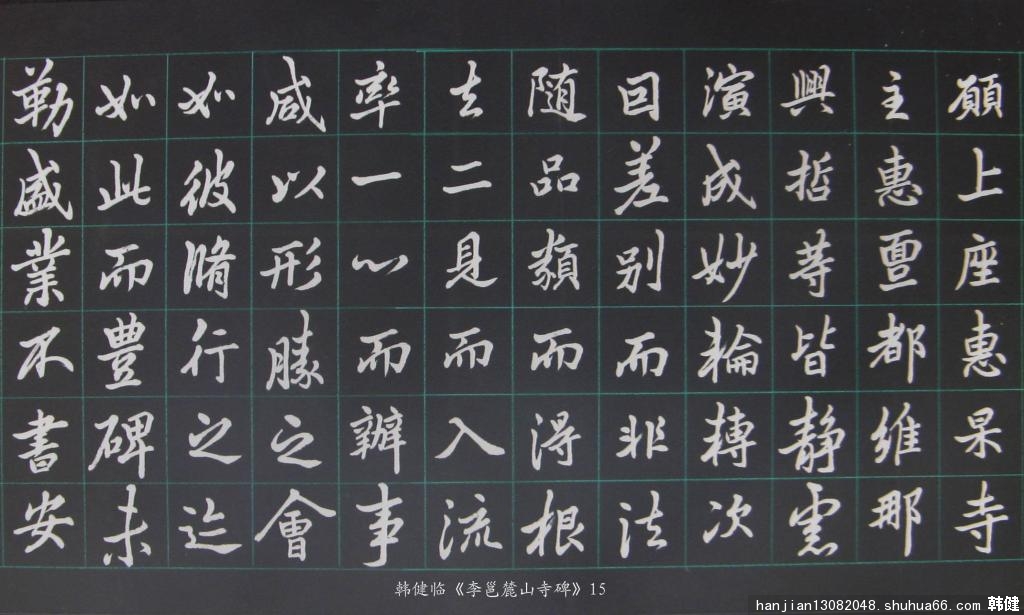 願上座惠杲寺
主惠亶都維那
興哲等皆静慮
演成妙輪轉次
回差别而非法
随品類而得根
去二見而入流
率一心而辦事
咸以形勝之會
如彼脩行之迹
如此而豐碑未
勒盛業不書安
韩健临《李邕麓山寺碑》15
hanjian13082048.shuhua66.com 韩健